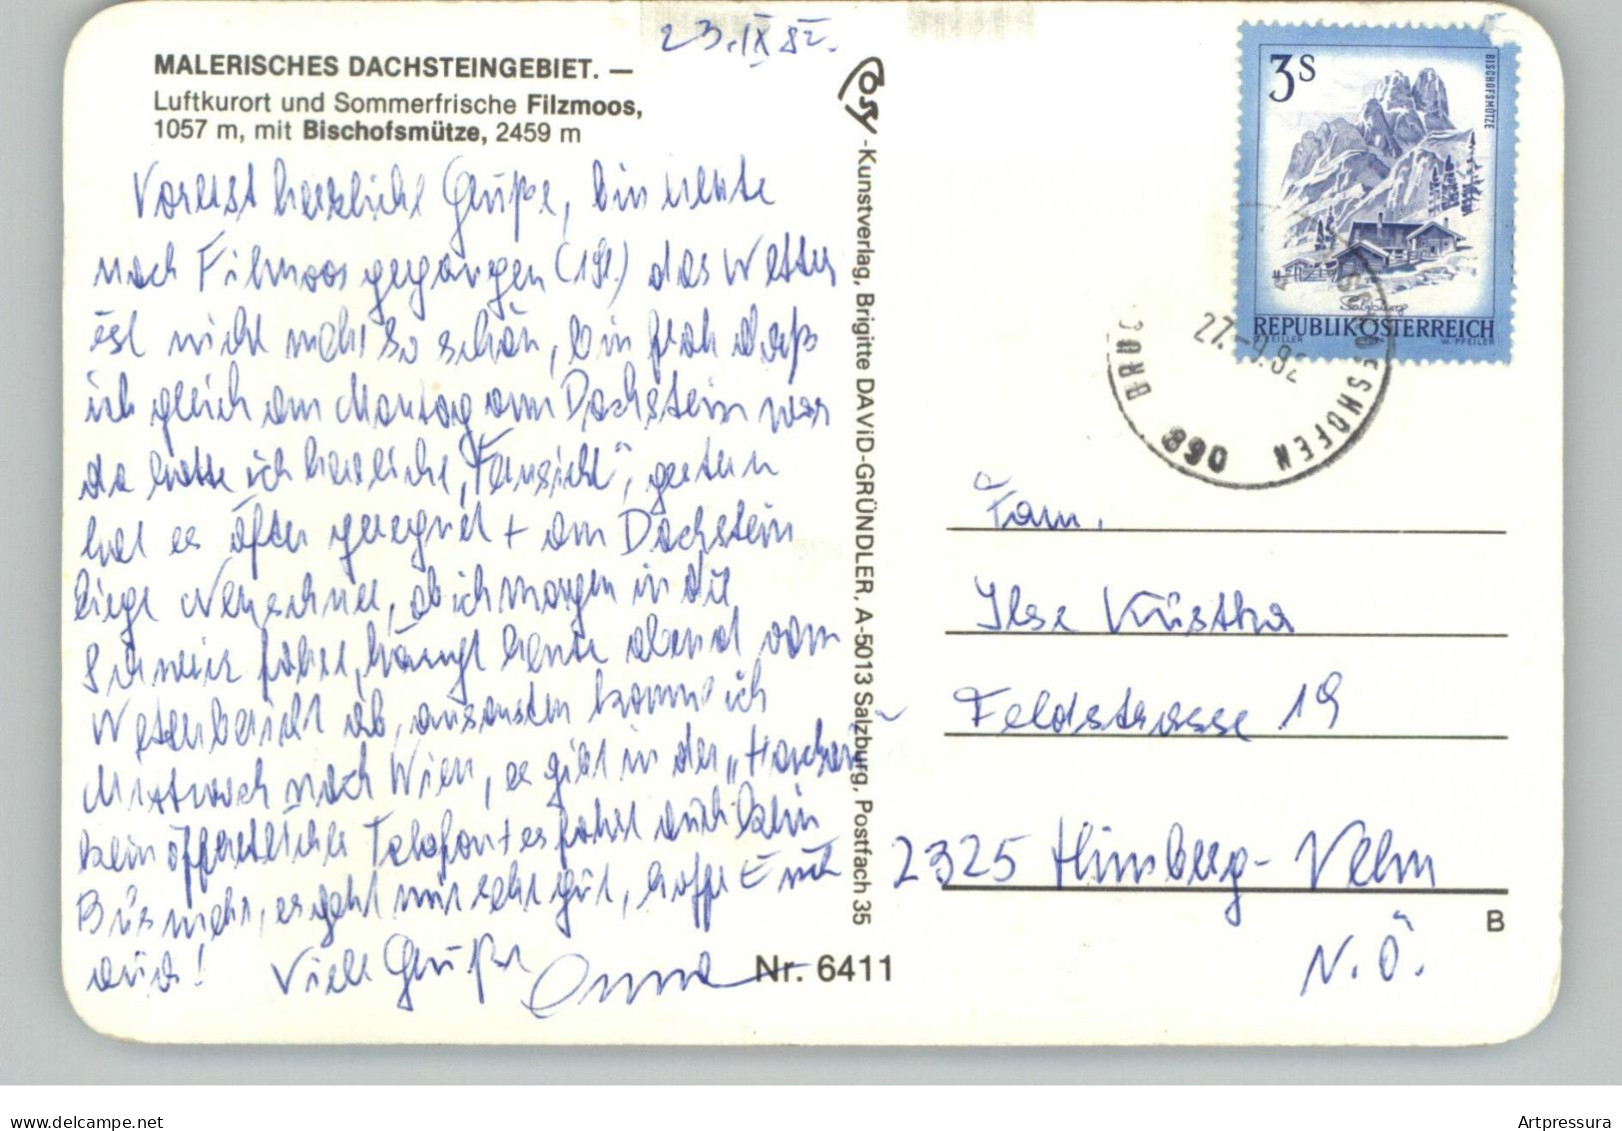 23.IX 82.
MALERISCHES DACHSTEINGEBIET. —
Luftkurort und Sommerfrische Filzmoos,
1057 m, mit Bischofsmütze, 2459 m
Vorerst herzliche Grüße, bin heute
nach Filzmoos gegangen (1 St.) das Wetter
ist nicht mehr so schön, bin froh daß
ich gleich am Montag am Dachstein war
da hatte ich herrliche „Fernsicht“, gestern
hat es öfter geregnet + am Dachstein
liegt Neuschnee, ob ich morgen in die
fahre, hängt heute abend vom
Wetterbericht ab, ansonsten komme ich
Mittwoch nach Wien, es gibt in der
kein öffentliches Telefon + es fährt auch kein
Bus mehr, es geht mir sehr gut, hoffe Euch
auch! Viele Grüße
Cosy-Kunstverlag, Brigitte DAViD-GRÜNDLER, A-5013 Salzburg, Postfach 35
Nr. 6411
3 S
BISCHOFSMÜTZE
Salzburg
REPUBLIK ÖSTERREICH
BISCHOFSHOFEN
27.-9.82
068
Fam.
Ilse
Feldstrasse 19
2325 Himberg-Velm
N.Ö.
B
hippostcard.com
Artpressura